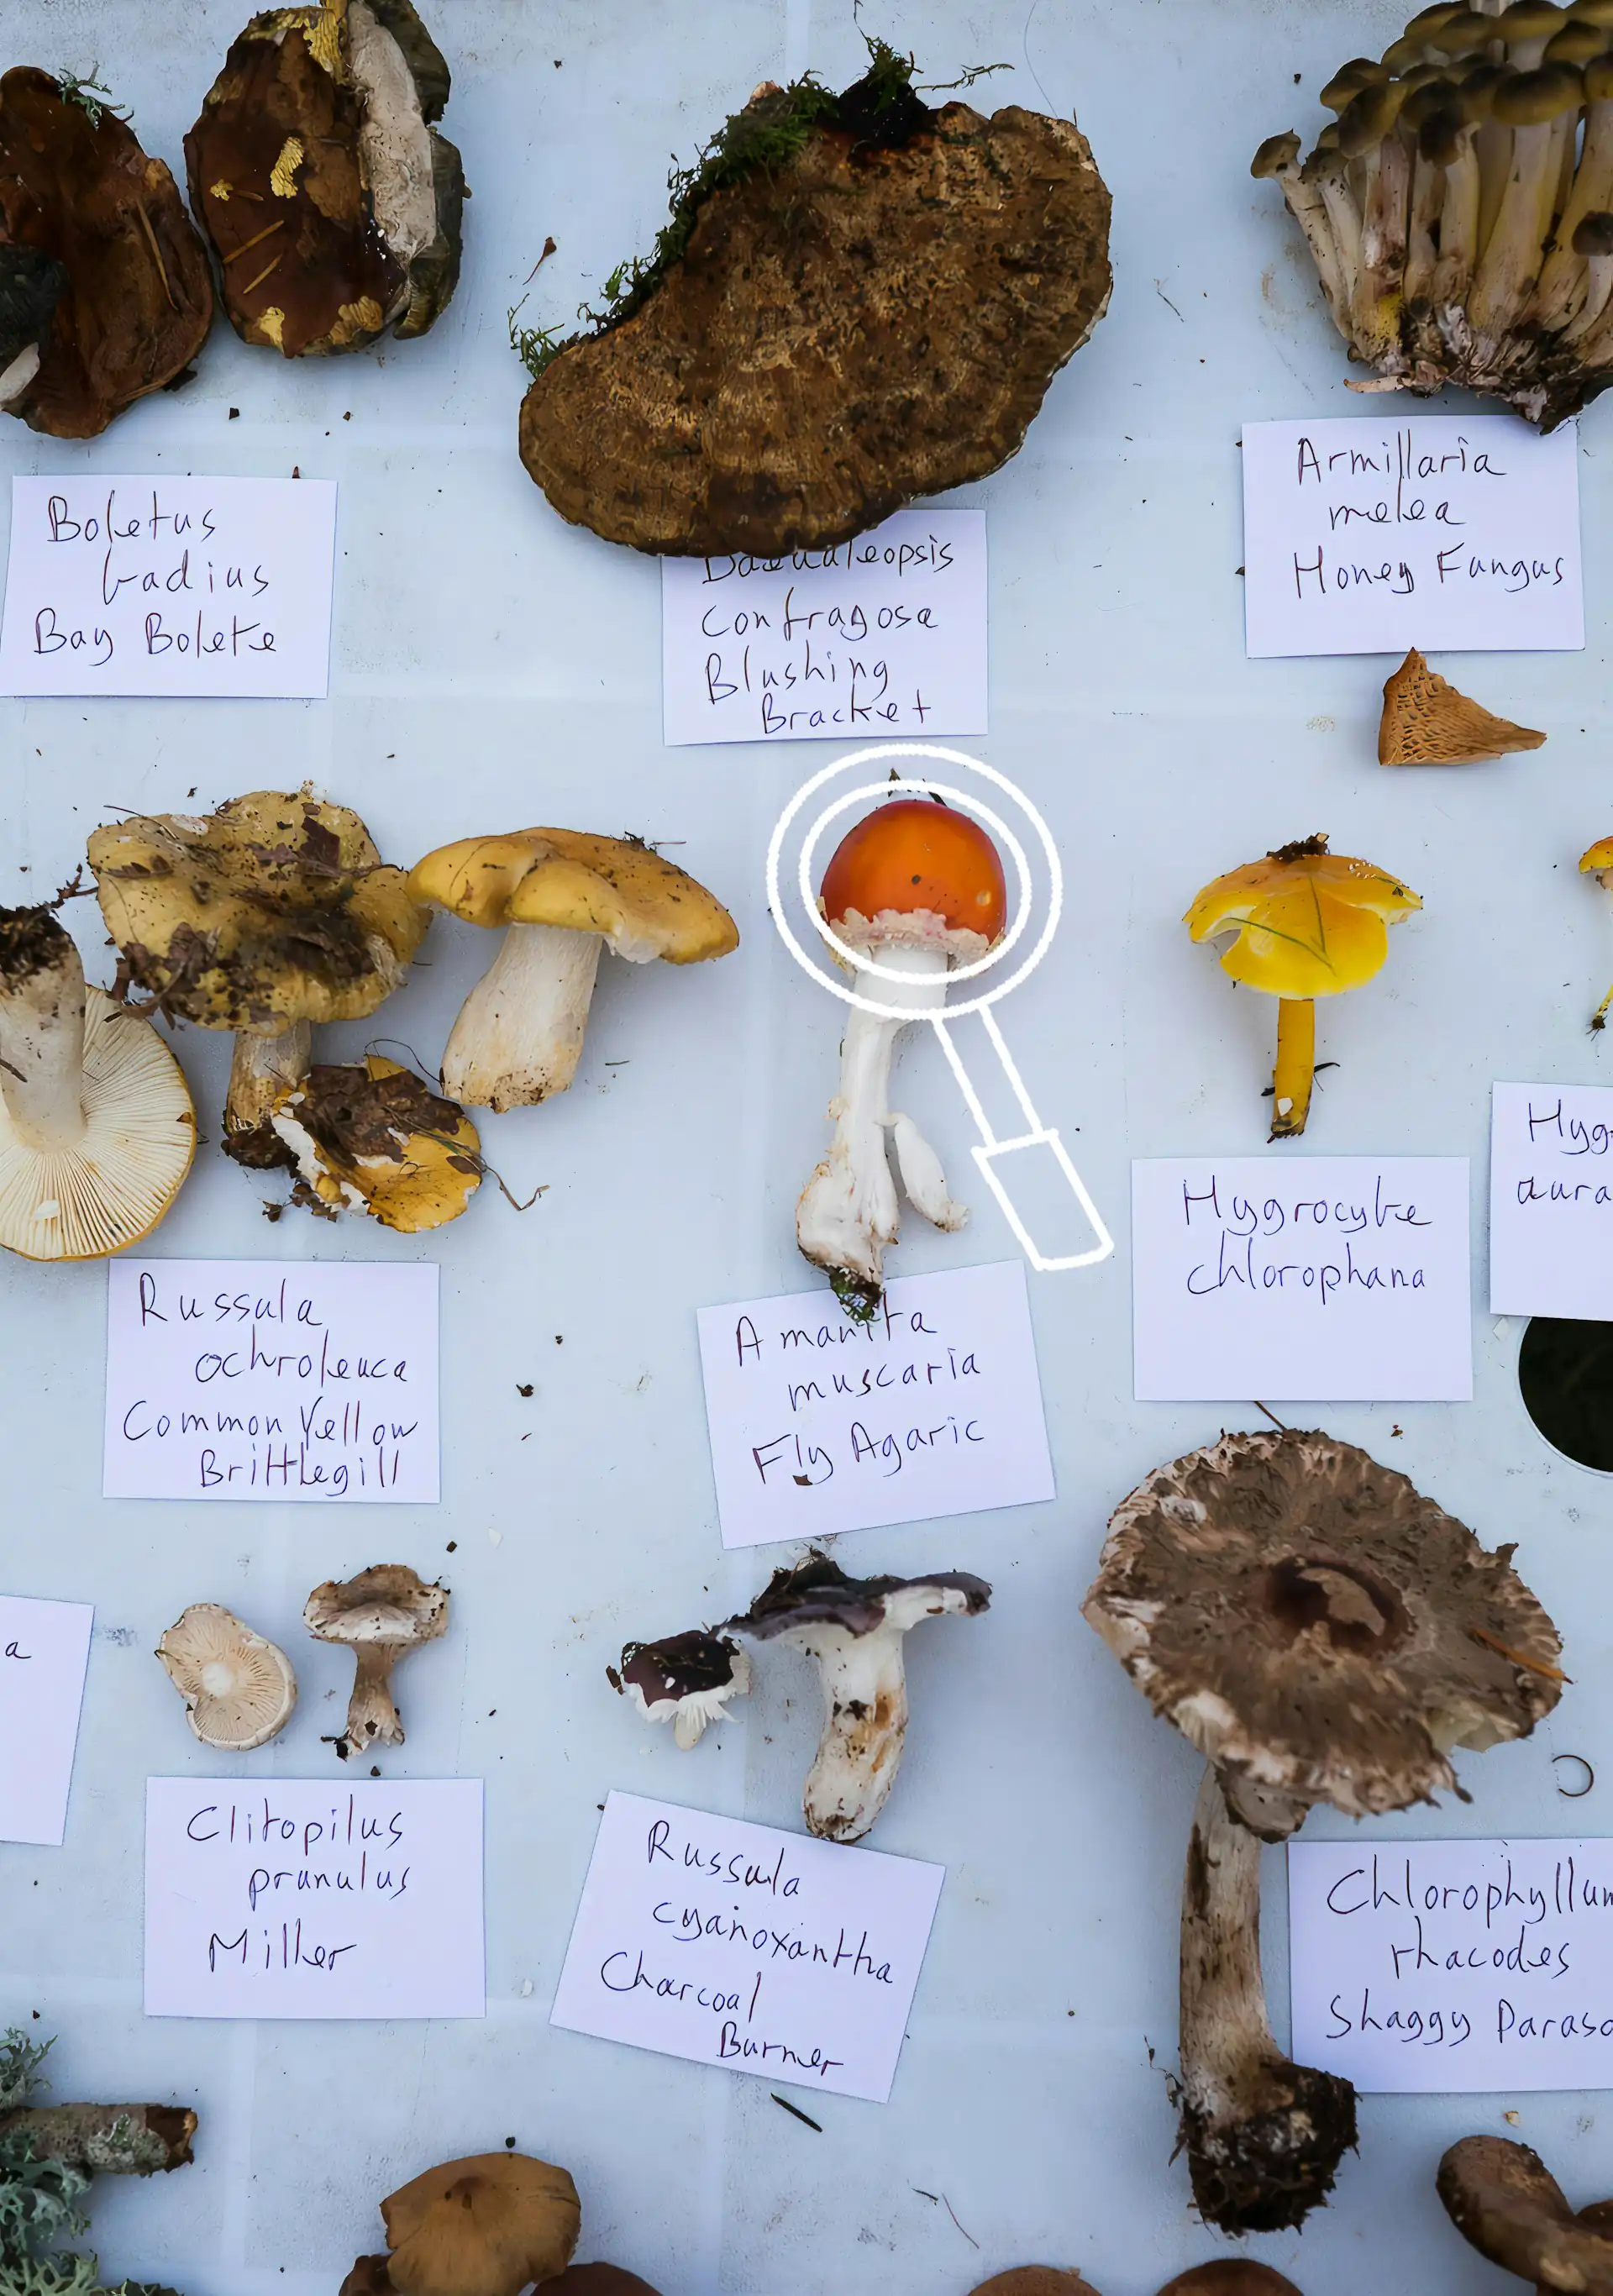 Boletus
badius
Bay Bolete
Daedaleopsis
Confragosa
Blushing
Bracket
Armillaria
melea
Honey Fungus
Russula
ochroleuca
Common Yellow
Brittlegill
Amanita
muscaria
Fly Agaric
Hygrocybe
chlorophana
Hyg
aura
a
Clitopilus
prunulus
Miller
Russula
cyanoxantha
Charcoal
Burner
Chlorophyllum
rhacodes
Shaggy Paraso